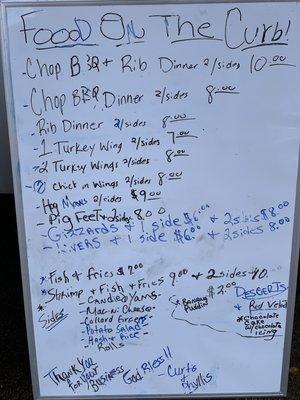 Food On The Curb!
-Chop BBQ + Rib Dinner 2/sides 10.00
-Chop BBQ Dinner 2/sides 8.00
-Rib Dinner 2/sides 8.00
-1 Turkey Wing 2/sides 7.00
-2 Turkey Wings 2/sides 8.00
-chicken Wings 2/sides 8.00
-Hog Maws 2/sides $9.00
-Pig Feet 2/sides 8.00
-Gizzards + 1 side $6.00 + 2 sides $8.00
-Livers + 1 side $6.00 + 2 sides 8.00
*Fish + fries $7.00
*Shrimp + Fish + Fries 9.00 + 2 sides 10.
*Sides
-Candied Yams
-Mac-n-Cheese
-Collard Greens
-Potato Salad
-Hash + Rice
Rolls
$2.00 Desserts
*Banana Puddin
*Red Velvet
*Chocolate Cake w/chocolate Icing
Thank You For Your Business
God Bless!!
-Curts + Phyllis